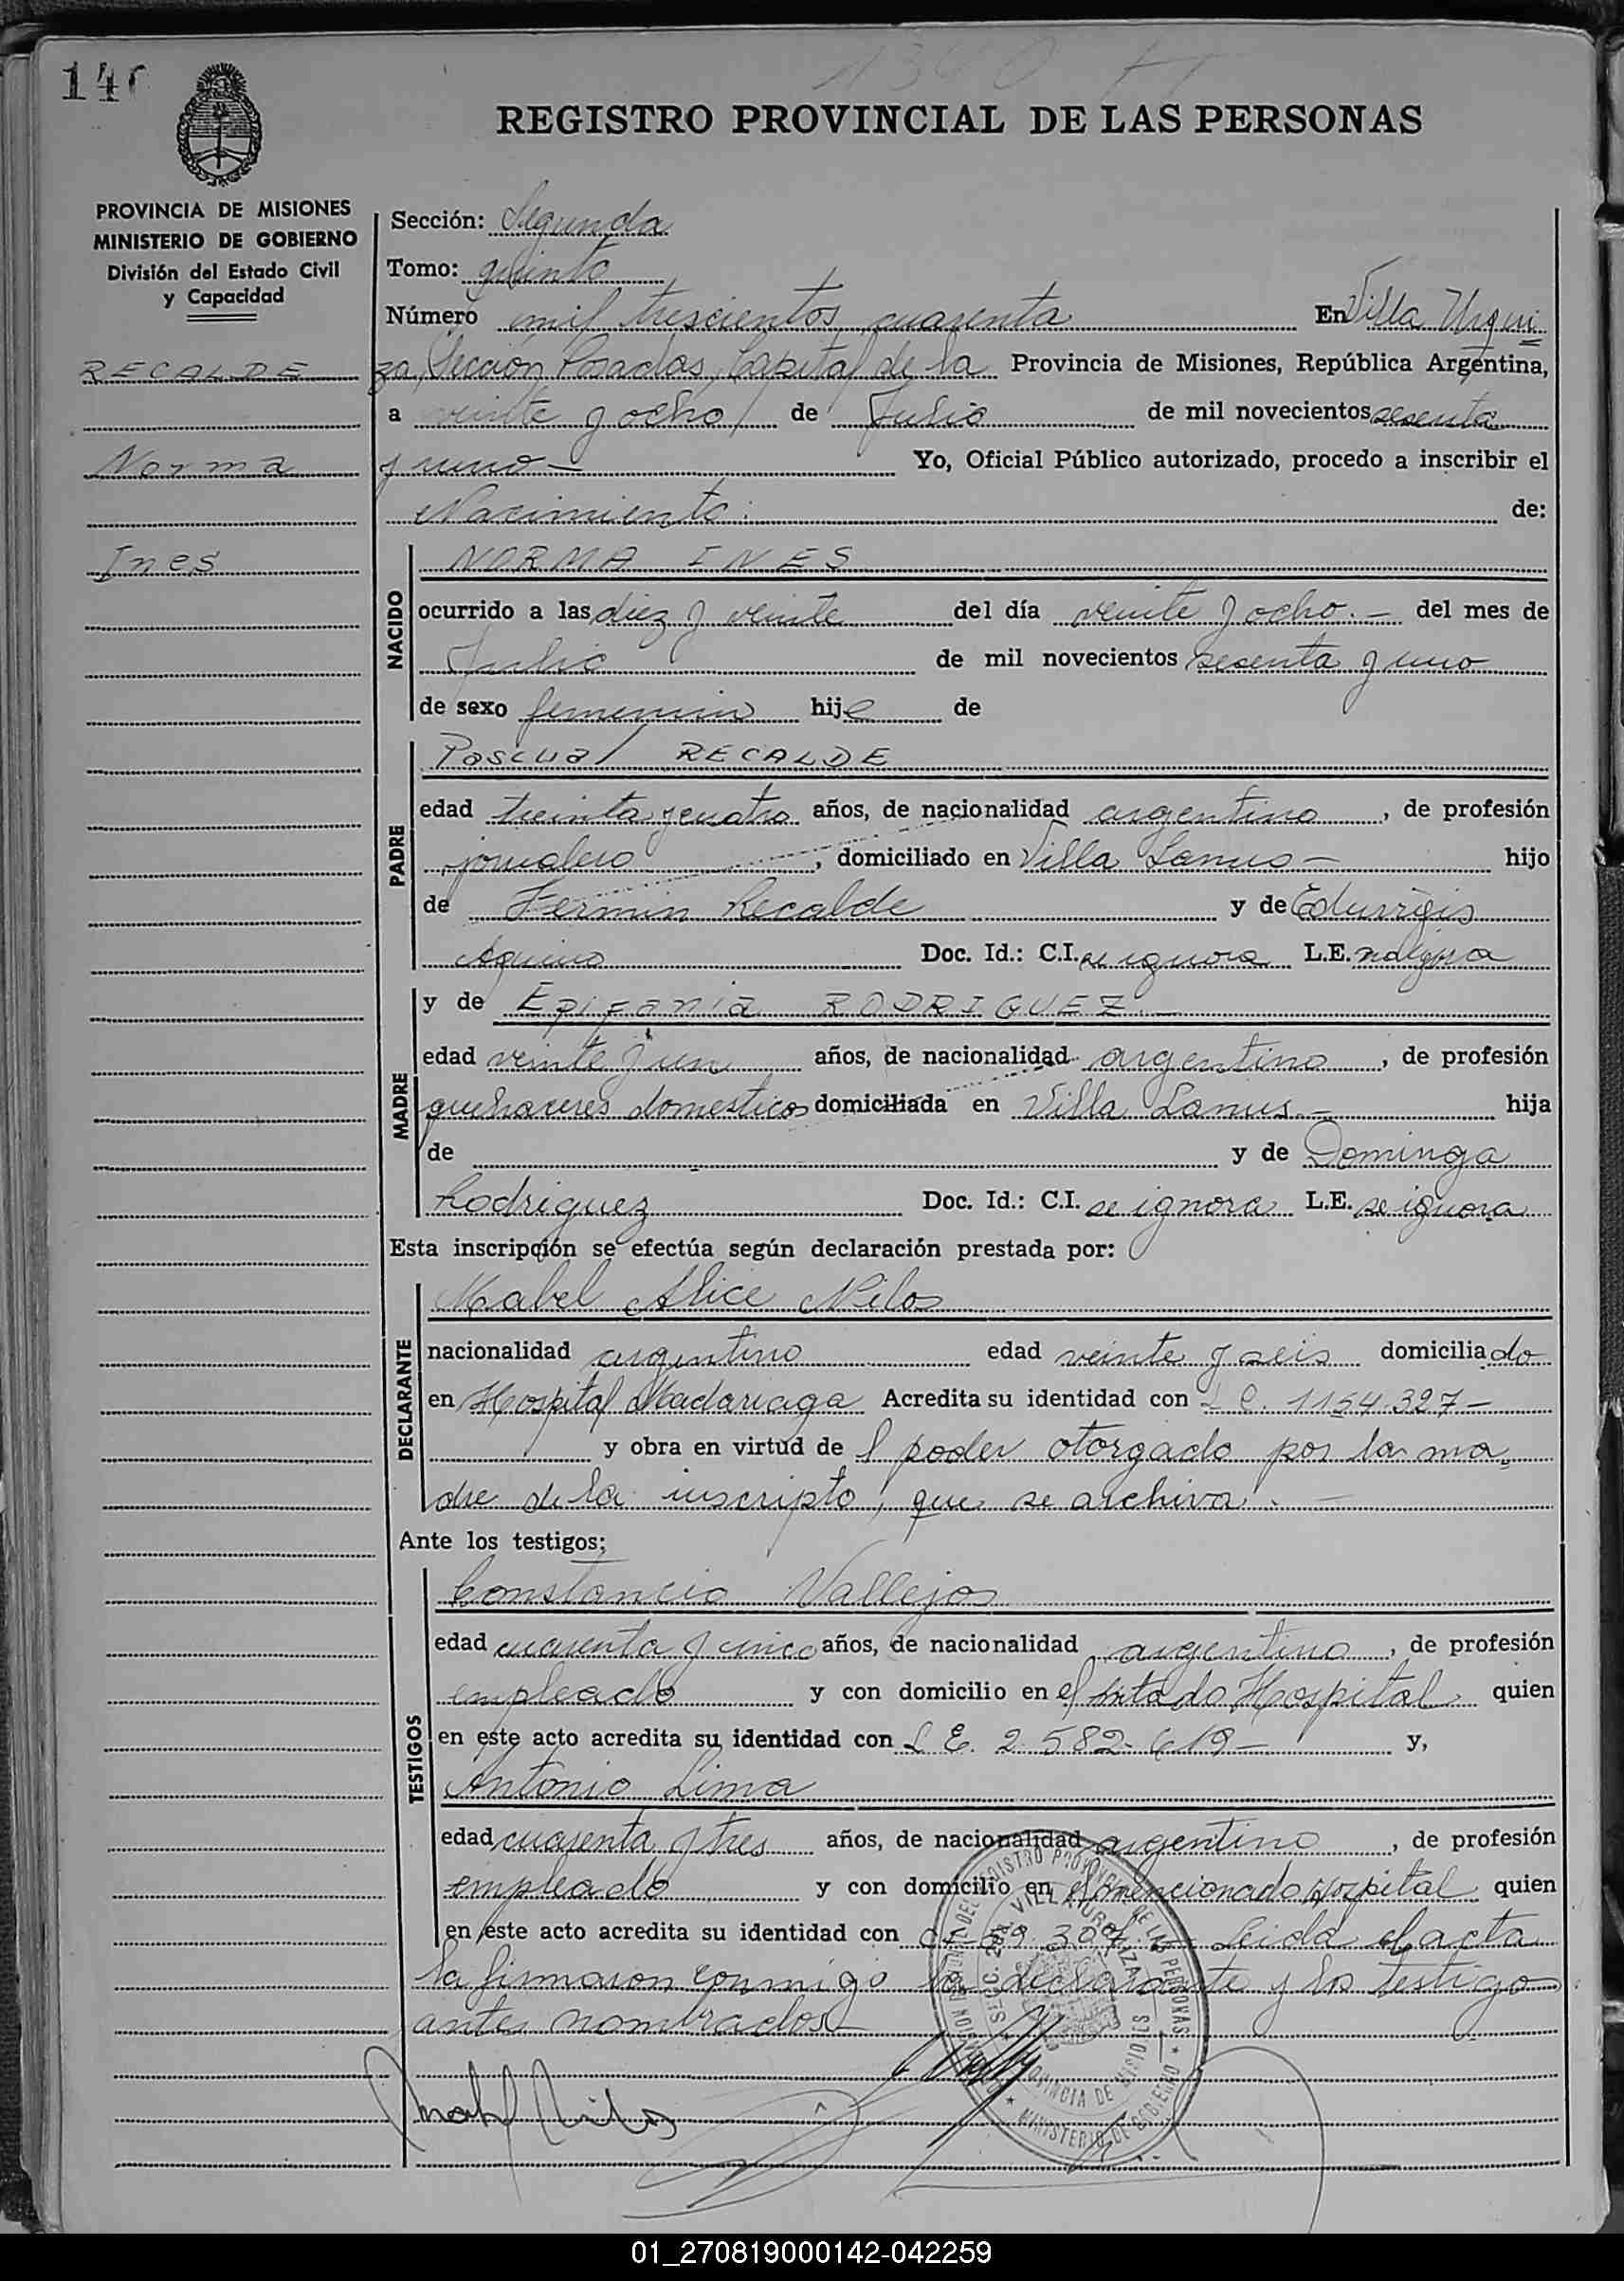 140
REGISTRO PROVINCIAL DE LAS PERSONAS
PROVINCIA DE MISIONES
MINISTERIO DE GOBIERNO
División del Estado Civil
y Capacidad
RECALDE
Norma
Ines
Sección: Segunda
Tomo: quinto
Número mil trescientos cuarenta En Villa Urqui
za, Sección Posadas, Capital de la Provincia de Misiones, República Argentina,
a veinte y ocho de Julio de mil novecientos sesenta
y uno — Yo, Oficial Público autorizado, procedo a inscribir el
Nacimiento: de:
NACIDO
NORMA INES
ocurrido a las diez y veinte del día veinte y ocho.— del mes de
Julio de mil novecientos sesenta y uno
de sexo femenino hije de
PADRE
Pascual RECALDE
edad treinta y cuatro años, de nacionalidad argentino, de profesión
jornalero, domiciliado en Villa Lanus — hijo
de Fermin Recalde y de Eduvigis
Aquino Doc. Id.: C.I. se ignora L.E.
MADRE
y de Epifania RODRIGUEZ —
edad veinte y un años, de nacionalidad argentino, de profesión
quehaceres domesticos domiciliada en Villa Lanus.— hija
de y de Dominga
Rodriguez Doc. Id.: C.I. se ignora L.E. se ignora
Esta inscripción se efectúa según declaración prestada por:
DECLARANTE
Mabel Alice Nilos
nacionalidad argentino edad veinte y seis domiciliado
en Hospital Madariaga Acredita su identidad con L C. 1154.327 —
y obra en virtud de l poder otorgado por la ma
dre de la inscripto, que se archiva.—
Ante los testigos:
TESTIGOS
Constancio Vallejos
edad cuarenta y cinco años, de nacionalidad argentino, de profesión
empleado y con domicilio en el citado Hospital quien
en este acto acredita su identidad con L E. 2.582.619 — y,
Antonio Lima
edad cuarenta y tres años, de nacionalidad argentino, de profesión
empleado y con domicilio en el mencionado Hospital quien
en este acto acredita su identidad con Leida el acta
la firmaron conmigo la declarante y los testigo
antes nombrados
Mabel Nilos
01_270819000142-042259